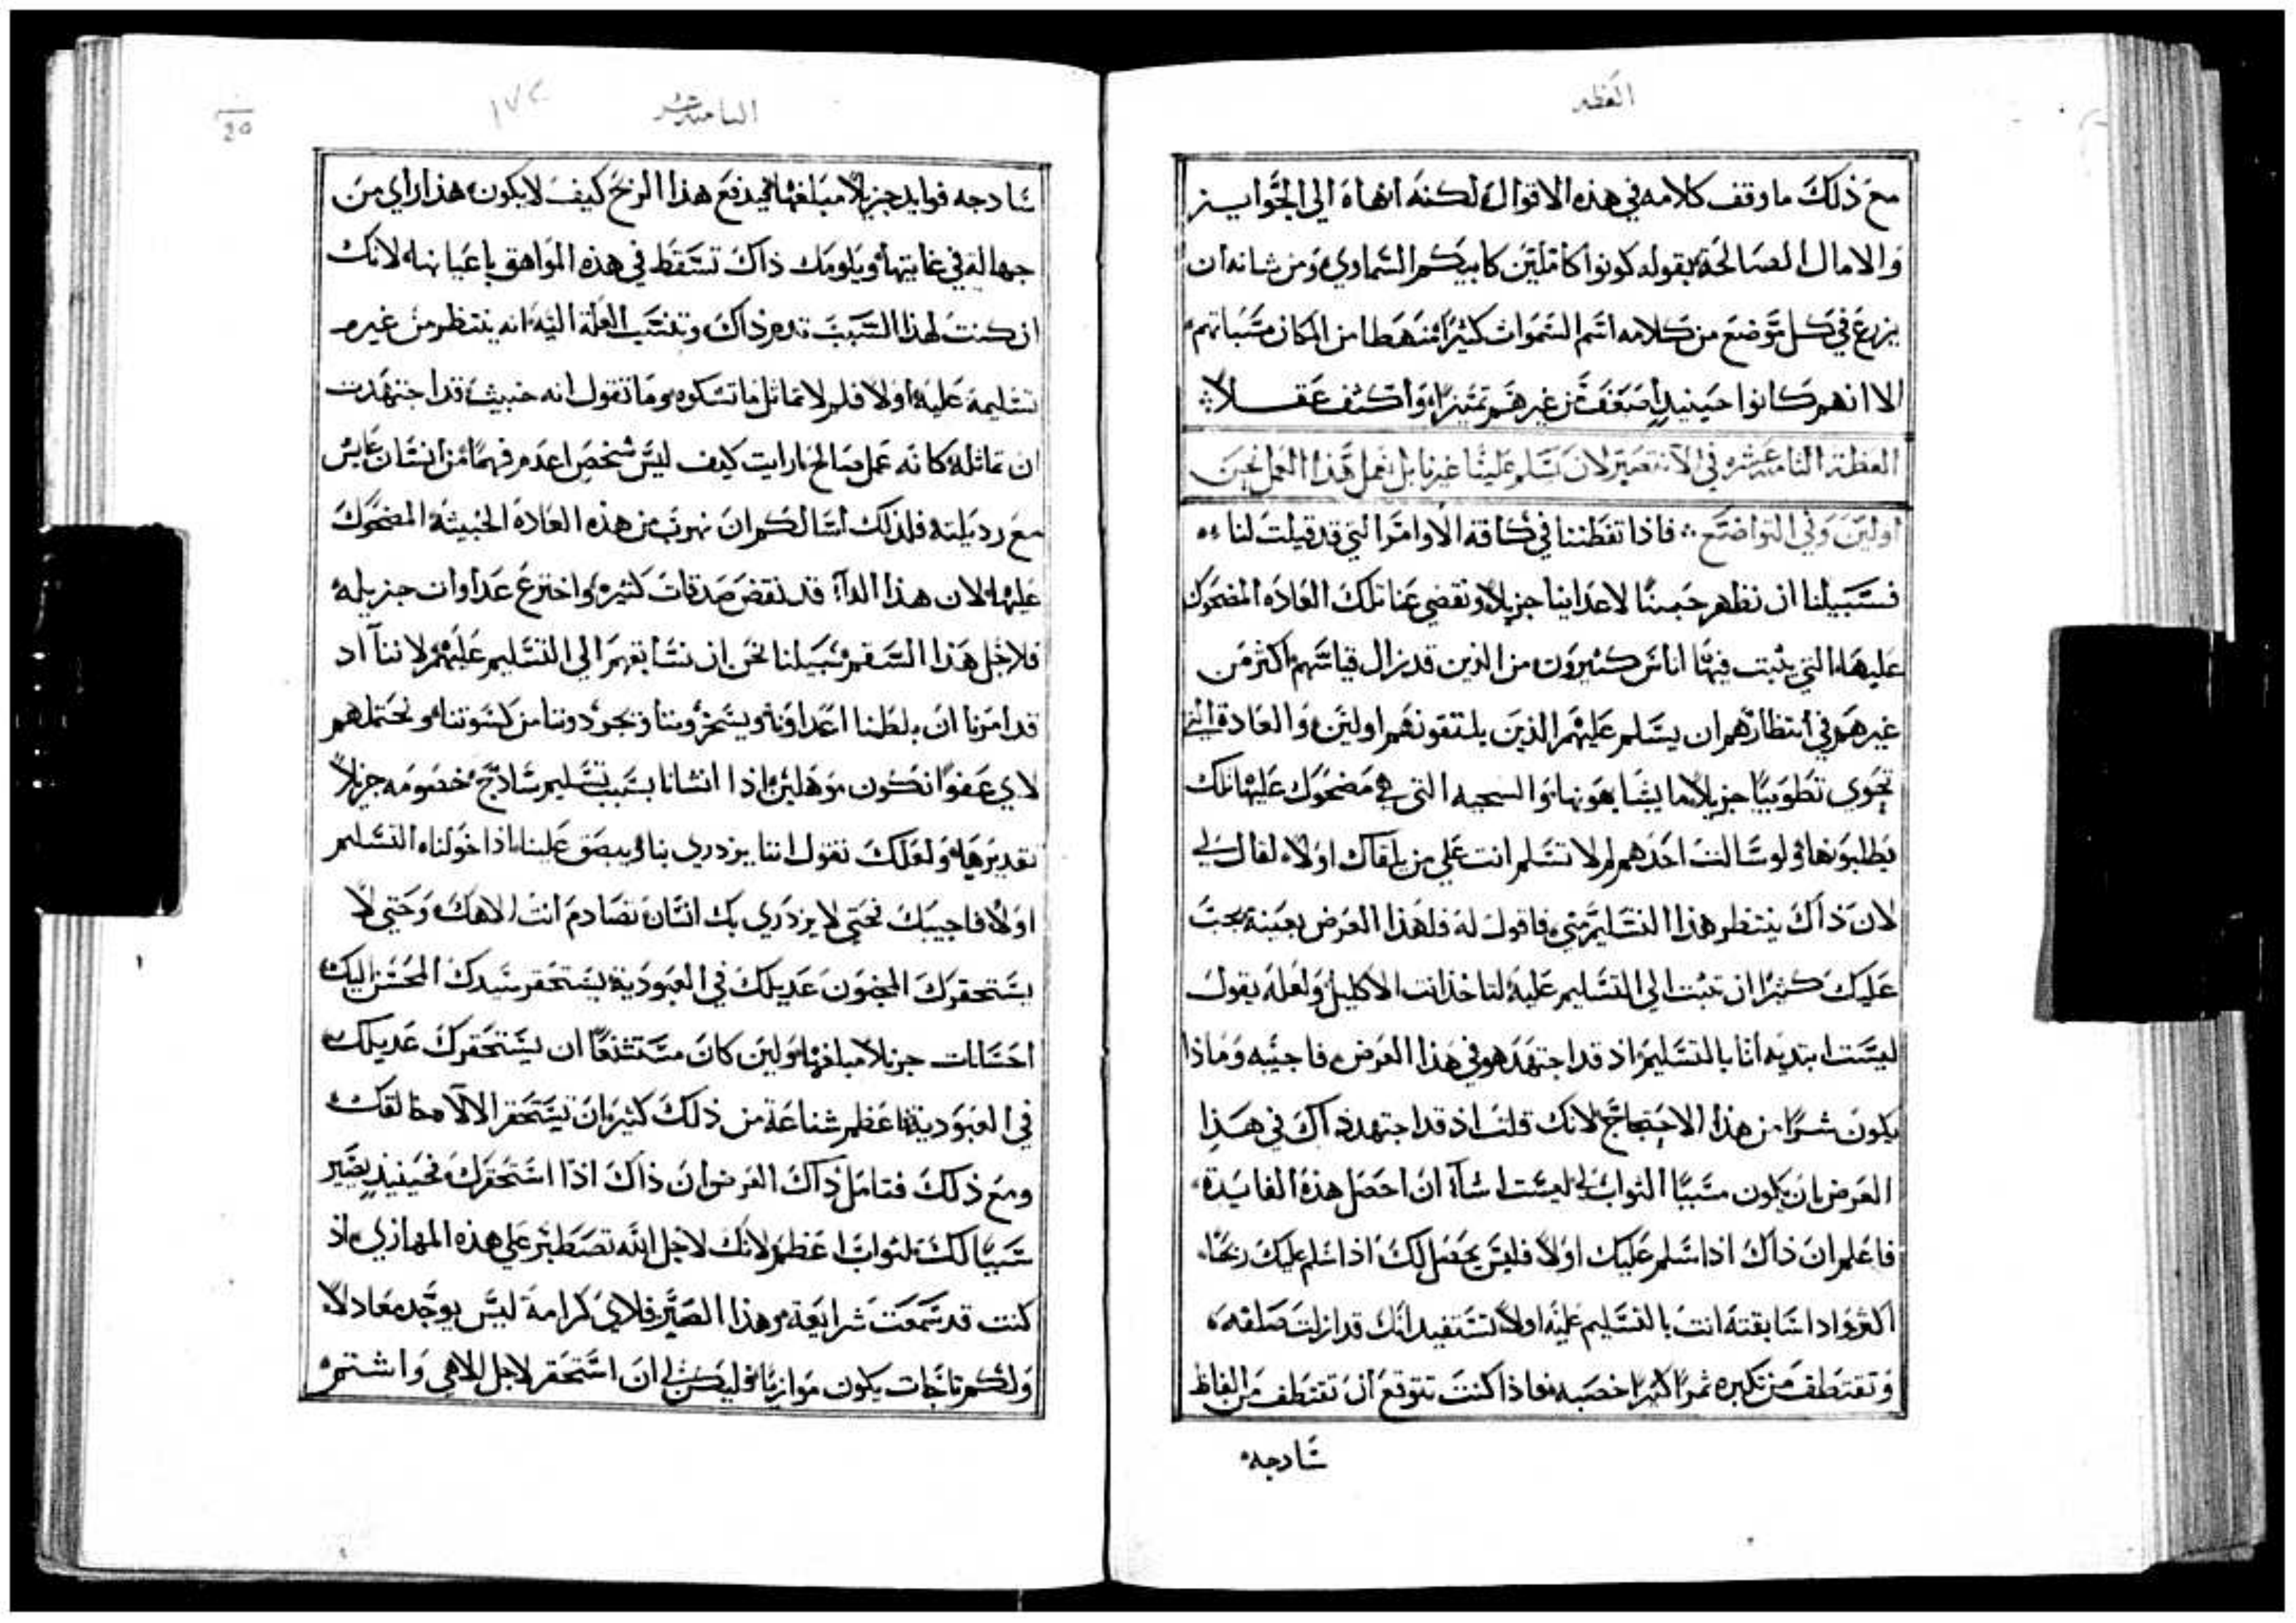 العظه
مع ذلك ما وقف كلامه في هذه الاقوال لكنه انهاه الي الجوايز
والامال الصالحة بقوله كونوا كاملين كابيكم السماوي ومن شانه ان
يزرع في كل موضع من كلامه اسم السموات كثيرا منهطا من المكان
الا انهم كانوا حينيذ اضعف من غيرهم تميزا واكثف عقلا
العظة الثامنة عشره في الا ننتظر لان يسلم علينا غيرنا بل نعمل هذا العمل نحن
اولين وفي التواضع فاذا تفطننا في كافة الاوامر التي قد قيلت لنا
فسبيلنا ان نظهر حبنا لاعداينا جزيلا ونقضي عنا تلك العاده المضحوك
عليها التي يثبت فيها اناس كثيرون من الذين قد زال قياسهم اكثر من
غيرهم في انتظارهم ان يسلم عليهم الذين يلتقونهم اولين والعادة التي
تحوي تطويبا جزيلا ما يشا يهونها والسجيه التي هي مضحوك عليها تلك
يطلبونها ولو سالت احدهم لم لا تسلم انت علي من يلقاك اولا لقال لي
لان ذاك ينتظر هذا التسليم مني فاقول له فلهذا الغرض بعينه يجب
عليك كثيرا ان تثبت الي التسليم عليه لتاخذ انت الاكليل ولعله يقول
ليست ابتديه انا بالتسليم اذ قد اجتهد هو في هذا الغرض فاجيبه وماذا
يكون شرا من هذا الاحتجاج لانك قلت اذ قد اجتهد ذاك في هذا
الغرض بان يكون سببا الثواب لي ليست اشاء ان احصل هذه الفايدة
فاعلم ان ذاك اذا سلم عليك اولا فليس يحصل لك اذا سلم عليك ربحا
اكثر واذا سابقته انت بالتسليم عليه اولا تستفيد انك قد ازلت صلفه
وتقتطف من تكبره ثمرا كثيرا خصبه فاذا كنت تتوقع ان تقتطف من الفاظ
سادجه
الثامنة عشر
١٧٢
20
سادجه فوايد جزيلا مبلغها فيدفع هذا الربح كيف لا يكون هذا راي من
جهالة في غايتها ويلومك ذاك تسقط في هذه المواهق باعيانها لانك
ان كنت لهذا السبب تدمر ذاك وتنسب العلة اليه انه ينتظر من غيره
تسليمه عليه اولا فلم لا تماثل ما تشكوه وما تقول انه خبيث قد اجتهدت
ان تماثله كانه عمل صالح ارايت كيف ليس شخص اعدم فهما من انسان عايش
مع رديلته فلذلك اسالكم ان نهرب من هذه العادة الخبيثة المضحوك
عليها لان هذا الداء قد نقض صدقات كثيره واخترع عداوات جزيله
فلاجل هذا السقم سبيلنا نحن ان نسابقهم الي التسليم عليهم لاننا اذ
قد امرنا ان يلطمنا اعداونا ويسخرونا ويجردونا من كسوتنا ونحتملهم
لاي عفوا نكون موهلين اذا انشانا بسبب تسليم سادج خصومه جزيلا
تقديرها ولعلك تقول اننا يزدري بنا ويبصق علينا اذا خولناه التسليم
اولا فاجيبك فحتي لا يزدري بك انسان تصادم انت الاهك وحتي لا
يستحقرك المجنون عديلك في العبودية يستحقر سيدك المحسن اليك
احسانات جزيلا مبلغها ولين كان مستشنعا ان يستحقرك عديلك
في العبودية فاعظم شناعة من ذلك كثيرا ان تستحقر الالاه خالقك
ومع ذلك فتامل ذاك الغرض ان ذاك اذا استحقرك فحينيذ يصير
سببا لك لثواب اعظم لانك لاجل الله تصطبر علي هذه المهازي اذ
كنت قد سمعت شرايعه وهذا الصبر فلاي كرامة ليس يوجد معادلا
ولكم تاجات يكون موازيا فليكن لي ان استحقر لاجل الاهي واشتم